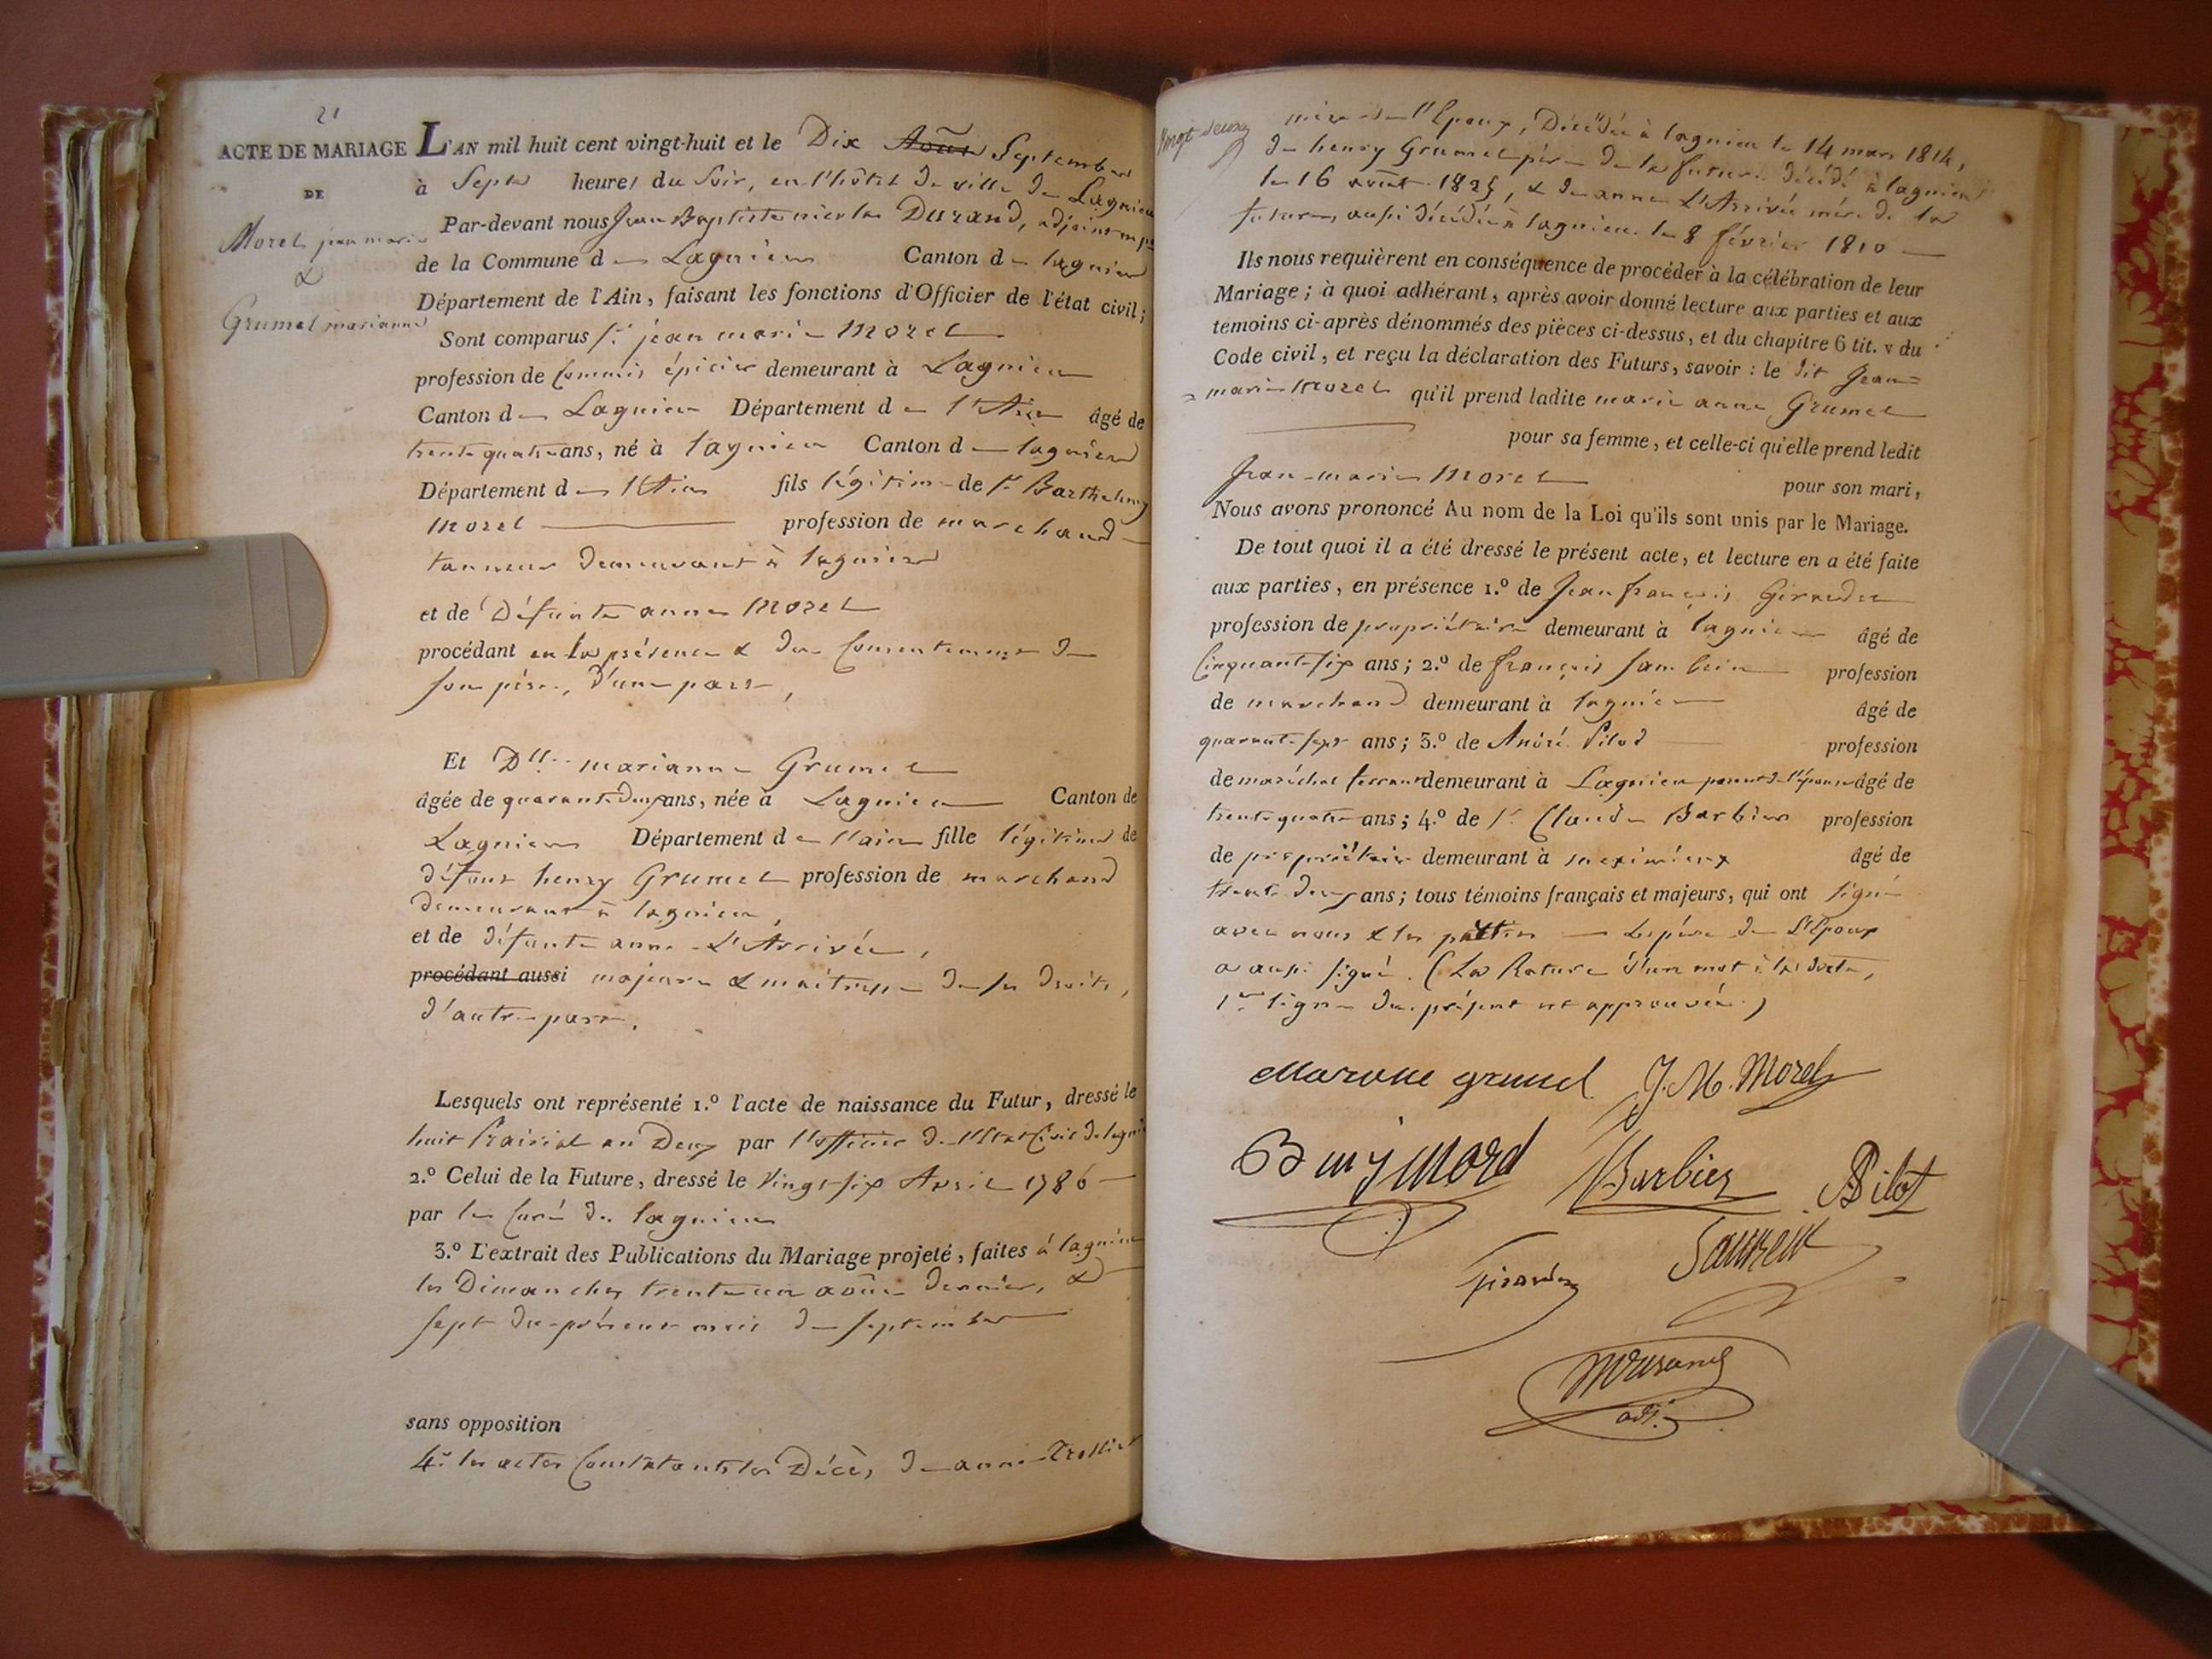 21
ACTE DE MARIAGE
DE
Morel jean marie
&
Grumel marianne
L'AN mil huit cent vingt-huit et le Dix Août Septembre
à Sept heures du Soir, en l'hôtel de ville de Lagnieu
Par-devant nous Jean Baptiste nicolas Durand, adjoint
de la Commune de Lagnieu Canton de lagnieu
Département de l'Ain, faisant les fonctions d'Officier de l'état civil;
Sont comparus Sr. jean marie Morel
profession de Commis épicier demeurant à Lagnieu
Canton de Lagnieu Département de l'Ain âgé de
trente quatre ans, né à lagnieu Canton de lagnieu
Département de l'Ain fils légitime de Sr. Barthelemy
Morel profession de marchand
tanneur demeurant à lagnieu
et de Défunte anne Morel
procédant en la présence & du Consentement de
son père, d'une part,
Et Dlle. marianne Grumel
âgée de quarante deux ans, née à Lagnieu Canton de
Lagnieu Département de l'ain fille légitime de
défunt henry Grumel profession de marchand
demeurant à lagnieu,
et de défunte anne L'Arrivée,
procédant aussi majeure & maitresse de ses droits,
d'autre part.
Lesquels ont représenté 1.º l'acte de naissance du Futur, dressé le
huit Prairial an Deux par l'officier de l'Etat Civil de lagnieu
2.º Celui de la Future, dressé le Vingt six Avril 1786
par le Curé de lagnieu
3.º L'extrait des Publications du Mariage projeté, faites à lagnieu
les Dimanches trente un août dernier, &
sept du présent mois de septembre
sans opposition
4.º les actes Constatants les Décès, de anne Trollier
Vingt deux
mère de l'Epoux, Décédée à lagnieu le 14 mars 1814,
de henry Grumel père de la future décédé à lagnieu
le 16 août 1825, & de anne L'Arrivée mère de la
future, aussi décédée à lagnieu le 8 février 1810
Ils nous requièrent en conséquence de procéder à la célébration de leur
Mariage; à quoi adhérant, après avoir donné lecture aux parties et aux
témoins ci-après dénommés des pièces ci-dessus, et du chapitre 6 tit. v du
Code civil, et reçu la déclaration des Futurs, savoir : le dit Jean
marie Morel qu'il prend ladite marie anne Grumel
pour sa femme, et celle-ci qu'elle prend ledit
Jean-marie Morel pour son mari,
Nous avons prononcé Au nom de la Loi qu'ils sont unis par le Mariage.
De tout quoi il a été dressé le présent acte, et lecture en a été faite
aux parties, en présence 1.º de Jean françois
profession de propriétaire demeurant à lagnieu âgé de
Cinquante six ans; 2.º de françois profession
de marchand demeurant à lagnieu âgé de
quarante sept ans; 3.º de André Pilod profession
de maréchal ferrant demeurant à Lagnieu parent de l'épouse âgé de
trente quatre ans; 4.º de Sr. Claude Barbier profession
de propriétaire demeurant à meximieux âgé de
trente deux ans; tous témoins français et majeurs, qui ont signé
avec nous & les parties le père de l'Epoux
a aussi signé. (La Rature d'un mot à la
1ère ligne du présent est approuvée.)
Marianne grumel J. M. Morel
Bmy Morel Barbier A Pilot
Girardon
Durand
adj.